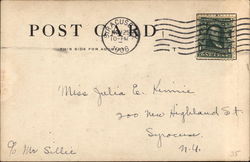 POST CARD
THIS SIDE FOR ADDRESS
SYRACUSE
1906
Miss Julia E. Kinnie
200 New Highland St.
Syracuse
% Mr Sillie
N.Y.